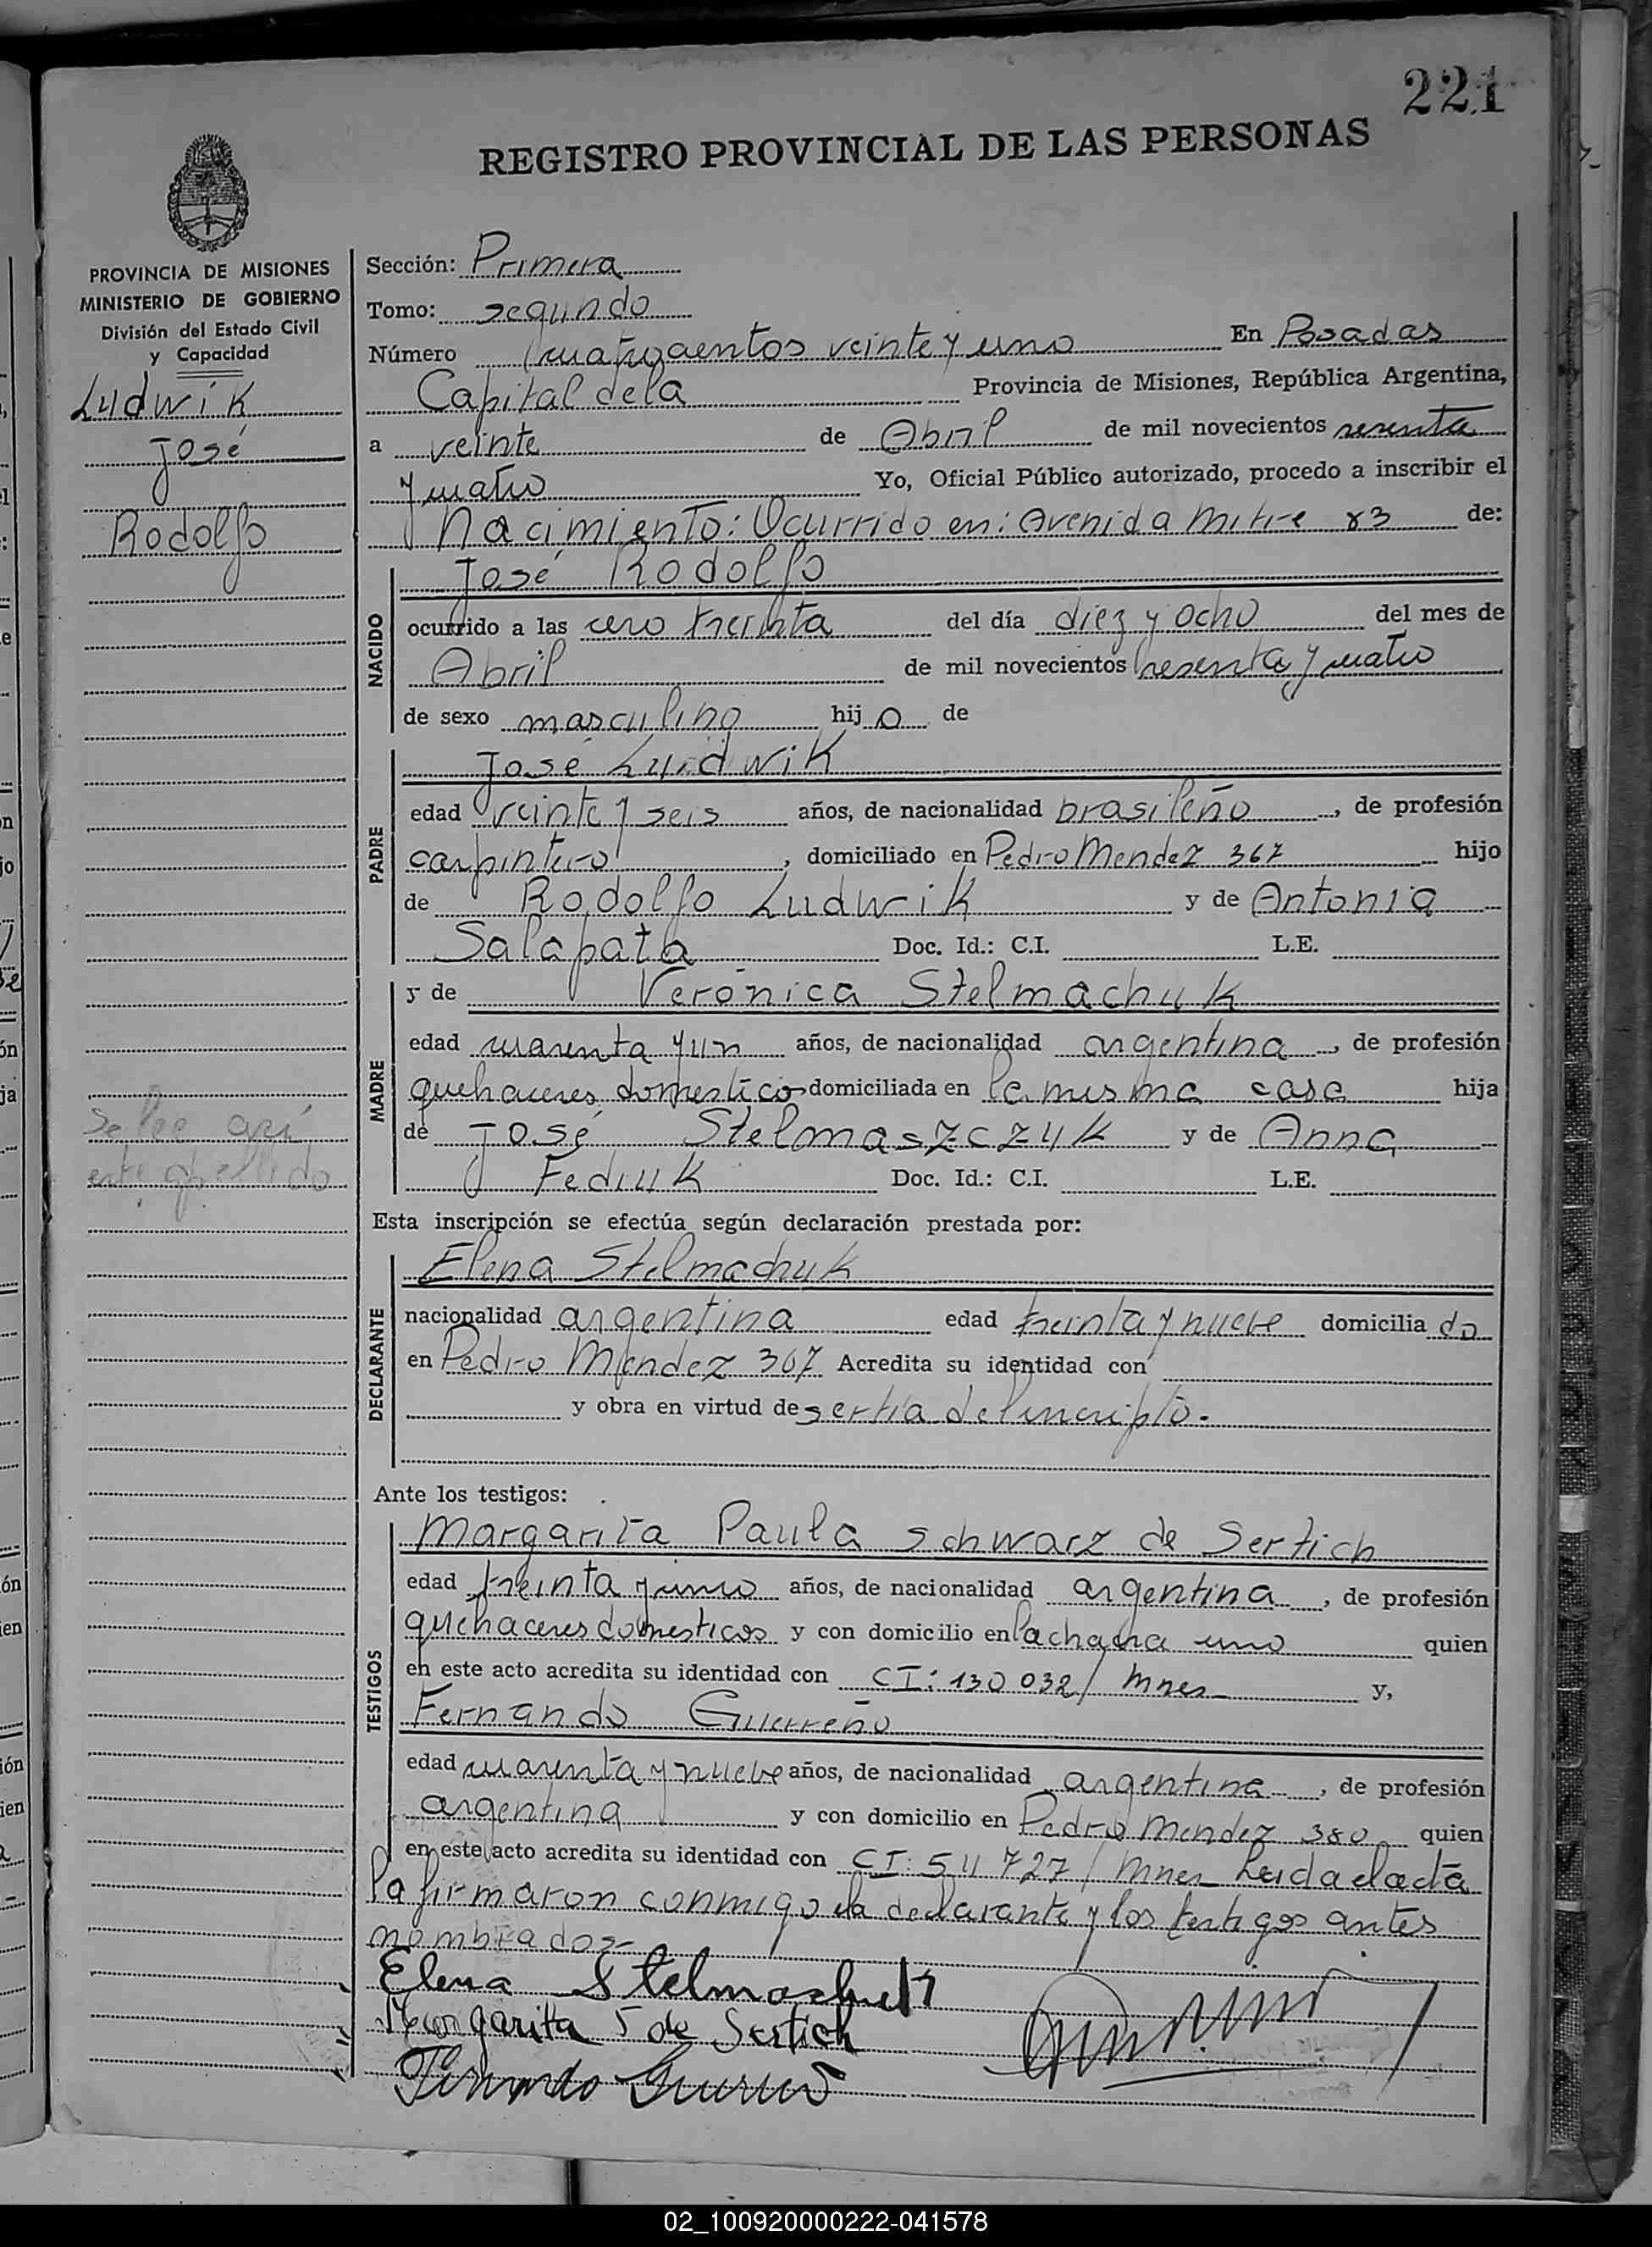 221
REGISTRO PROVINCIAL DE LAS PERSONAS
PROVINCIA DE MISIONES
MINISTERIO DE GOBIERNO
División del Estado Civil
y Capacidad
Ludwik
José
Rodolfo
Se lee así
este apellido
Sección: Primera
Tomo: segundo
Número cuatrocientos veinte y uno En Posadas
Capital de la Provincia de Misiones, República Argentina,
a veinte de Abril de mil novecientos sesenta
y cuatro Yo, Oficial Público autorizado, procedo a inscribir el
Nacimiento: Ocurrido en: Avenida Mitre 83 de:
José Rodolfo
NACIDO
ocurrido a las cero treinta del día diez y ocho del mes de
Abril de mil novecientos sesenta y cuatro
de sexo masculino hijo de
José Ludwik
PADRE
edad veinte y seis años, de nacionalidad brasileño, de profesión
carpintero, domiciliado en Pedro Mendez 367 hijo
de Rodolfo Ludwik y de Antonia
Salapata Doc. Id.: C.I. L.E.
y de Verónica Stelmachuk
MADRE
edad cuarenta y un años, de nacionalidad argentina, de profesión
quehaceres domestico domiciliada en la misma casa hija
de José Stelmaszczuk y de Anna
Fediuk Doc. Id.: C.I. L.E.
Esta inscripción se efectúa según declaración prestada por:
Elena Stelmachuk
DECLARANTE
nacionalidad argentina edad treinta y nueve domiciliado
en Pedro Mendez 367 Acredita su identidad con
y obra en virtud de ser tía del inscripto.
Ante los testigos:
Margarita Paula Schwarz de Sertich
TESTIGOS
edad treinta y años, de nacionalidad argentina, de profesión
quehaceres domesticos y con domicilio en la chacra uno quien
en este acto acredita su identidad con CI: 130 032/ Mnes y,
Fernando Guerreño
edad cuarenta y nueve años, de nacionalidad argentina, de profesión
argentina y con domicilio en Pedro Mendez 380 quien
en este acto acredita su identidad con CI: 54 727/ Mnes Leida el acta
la firmaron conmigo la declarante y los testigos antes
nombrados-
Elena Stelmachuk
Margarita S de Sertich
Fernando Guerreño
02_100920000222-041578